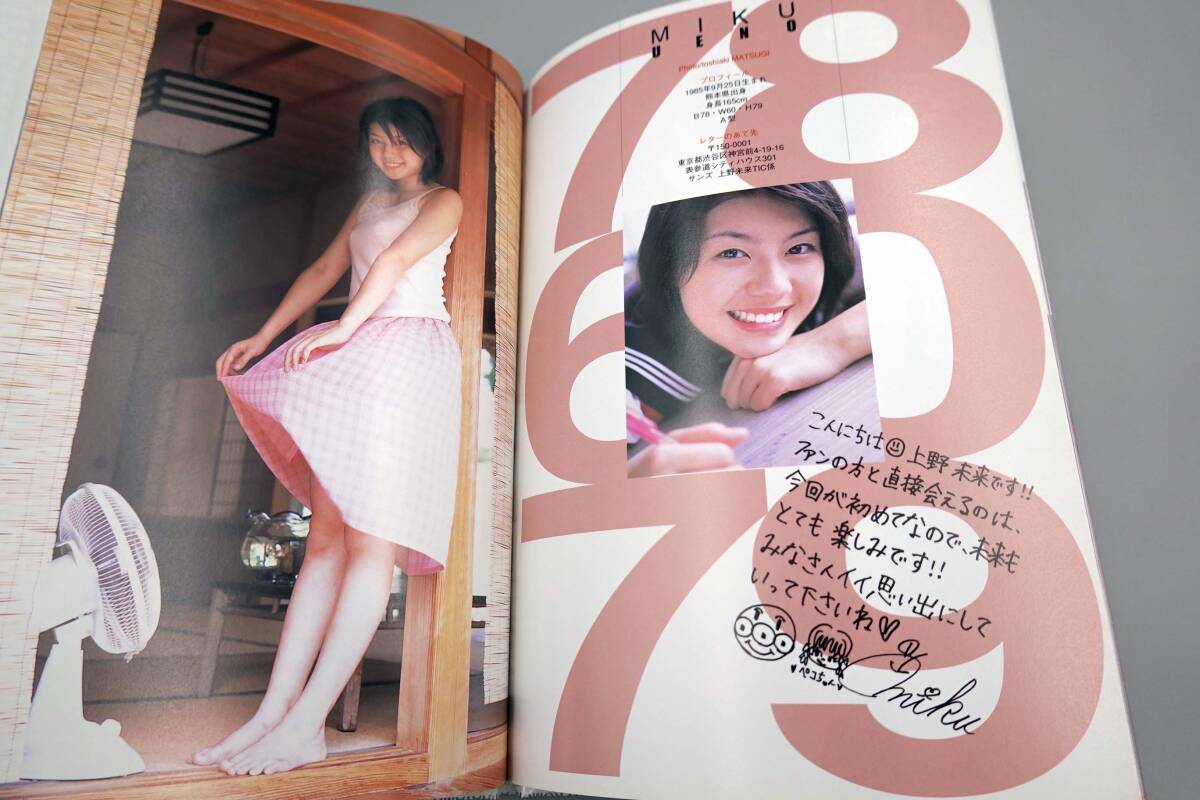 MIKU
UENO
Photo/toshiaki MATSUGI
プロフィール
1985年9月25日生まれ
熊本県出身
身長165cm
B78・W60・H79
A型
レターのあて先
〒150-0001
東京都渋谷区神宮前4-19-16
表参道シティハウス301
サンズ 上野未来TIC係
78
60
79
こんにちは 上野 未来です!!
ファンの方と直接会えるのは、
今回が初めてなので、未来も
とても 楽しみです!!
みなさんイイ思い出にして
いって下さいね♡
♥ペコちゃん♥
miku